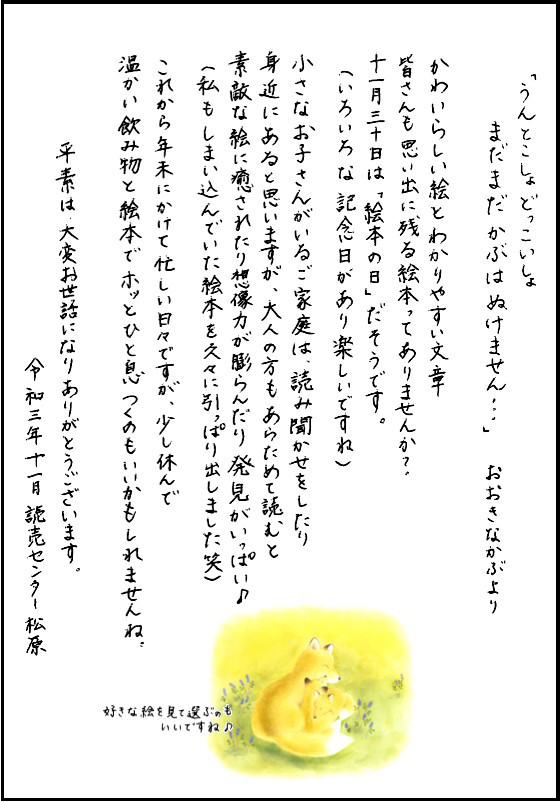 「うんとこしょどっこいしょ
まだまだかぶはぬけません…」 おおきなかぶより
かわいらしい絵とわかりやすい文章
皆さんも思い出に残る絵本ってありませんか?
十一月三十日は「絵本の日」だそうです。
(いろいろな記念日があり楽しいですね)
小さなお子さんがいるご家庭は、読み聞かせをしたり
身近にあると思いますが、大人の方もあらためて読むと
素敵な絵に癒されたり想像力が膨らんだり発見がいっぱい♪
(私もしまい込んでいた絵本を久々に引っぱり出しました笑)
これから年末にかけて忙しい日々ですが、少し休んで
温かい飲み物と絵本でホッとひと息つくのもいいかもしれませんね。
平素は大変お世話になりありがとうございます。
令和三年十一月 読売センター松原
好きな絵を見て選ぶのも
いいですね♪